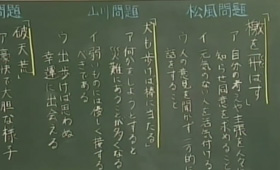 松風問題
「檄を飛ばす」
ア 自分の考えや主張を人々に
知らせ同意を求めること
イ 元気のない人を活気付けること
ウ 人の意見を聞かず一方的に
話をすること
山川問題
「犬も歩けば棒に当たる」
ア 何かをしようとすると
災難にあうことが多くなる
イ 弱いものには優しく接する
べきである
ウ 出歩けば思わぬ
幸運に出会える
問題
「破天荒」
ア 豪快で大胆な様子